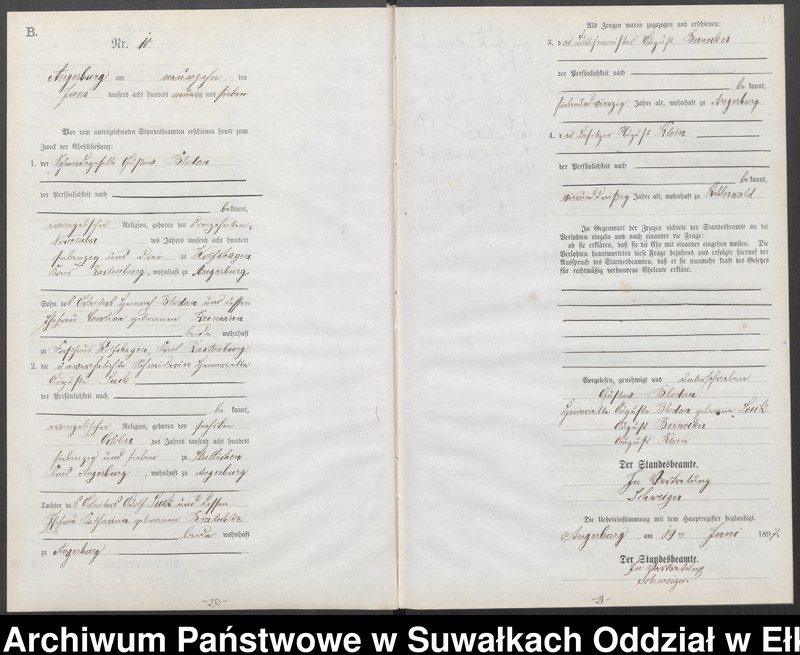 B.
Nr. 10
Angerburg am neunzehn ten
Juni tausend acht hundert neunzig und sieben
Vor dem unterzeichneten Standesbeamten erschienen heute zum
Zweck der Eheschließung:
1. der Schmiedegeselle Gustav Blodau
der Persönlichkeit nach
be kannt,
evangelischer Religion, geboren den dreizehnten
November des Jahres tausend acht hundert
siebenzig und drei zu Wolfshagen
Kreis Rastenburg, wohnhaft zu Angerburg
Sohn des Heinrich Blodau und dessen
Ehefrau Caroline geborenen
beide wohnhaft
zu Forsthaus Wolfshagen, Kreis Rastenburg
2. die unverehelichte Schneiderin Henriette
Auguste Suck
der Persönlichkeit nach
be kannt,
evangelischer Religion, geboren den
October des Jahres tausend acht hundert
siebenzig und sieben zu Stullichen
Kreis Angerburg, wohnhaft zu Angerburg
Tochter des Adolf Suck und dessen
Ehefrau Katharina geborenen
beide wohnhaft
zu Angerburg
-20-
Als Zeugen waren zugezogen und erschienen:
3. der August Bernecker
der Persönlichkeit nach
be kannt,
siebenundvierzig Jahre alt, wohnhaft zu Angerburg
4. der Besitzer August Klein
der Persönlichkeit nach
be kannt,
vierunddreißig Jahre alt, wohnhaft zu
In Gegenwart der Zeugen richtete der Standesbeamte an die
Verlobten einzeln und nach einander die Frage:
ob sie erklären, daß sie die Ehe mit einander eingehen wollen. Die
Verlobten beantworteten diese Frage bejahend und erfolgte hierauf der
Ausspruch des Standesbeamten, daß er sie nunmehr kraft des Gesetzes
für rechtmäßig verbundene Eheleute erkläre.
Vorgelesen, genehmigt und unterschrieben
Gustav Blodau
Henriette Auguste Blodau geborene Suck
August Bernecker
August Klein
Der Standesbeamte.
In Vertretung
Schweiger
Die Uebereinstimmung mit dem Hauptregister beglaubigt.
Angerburg am 19ten Juni 1897
Der Standesbeamte.
In Vertretung
Schweiger.
-21-
Archiwum Państwowe w Suwałkach Oddział w Ełk